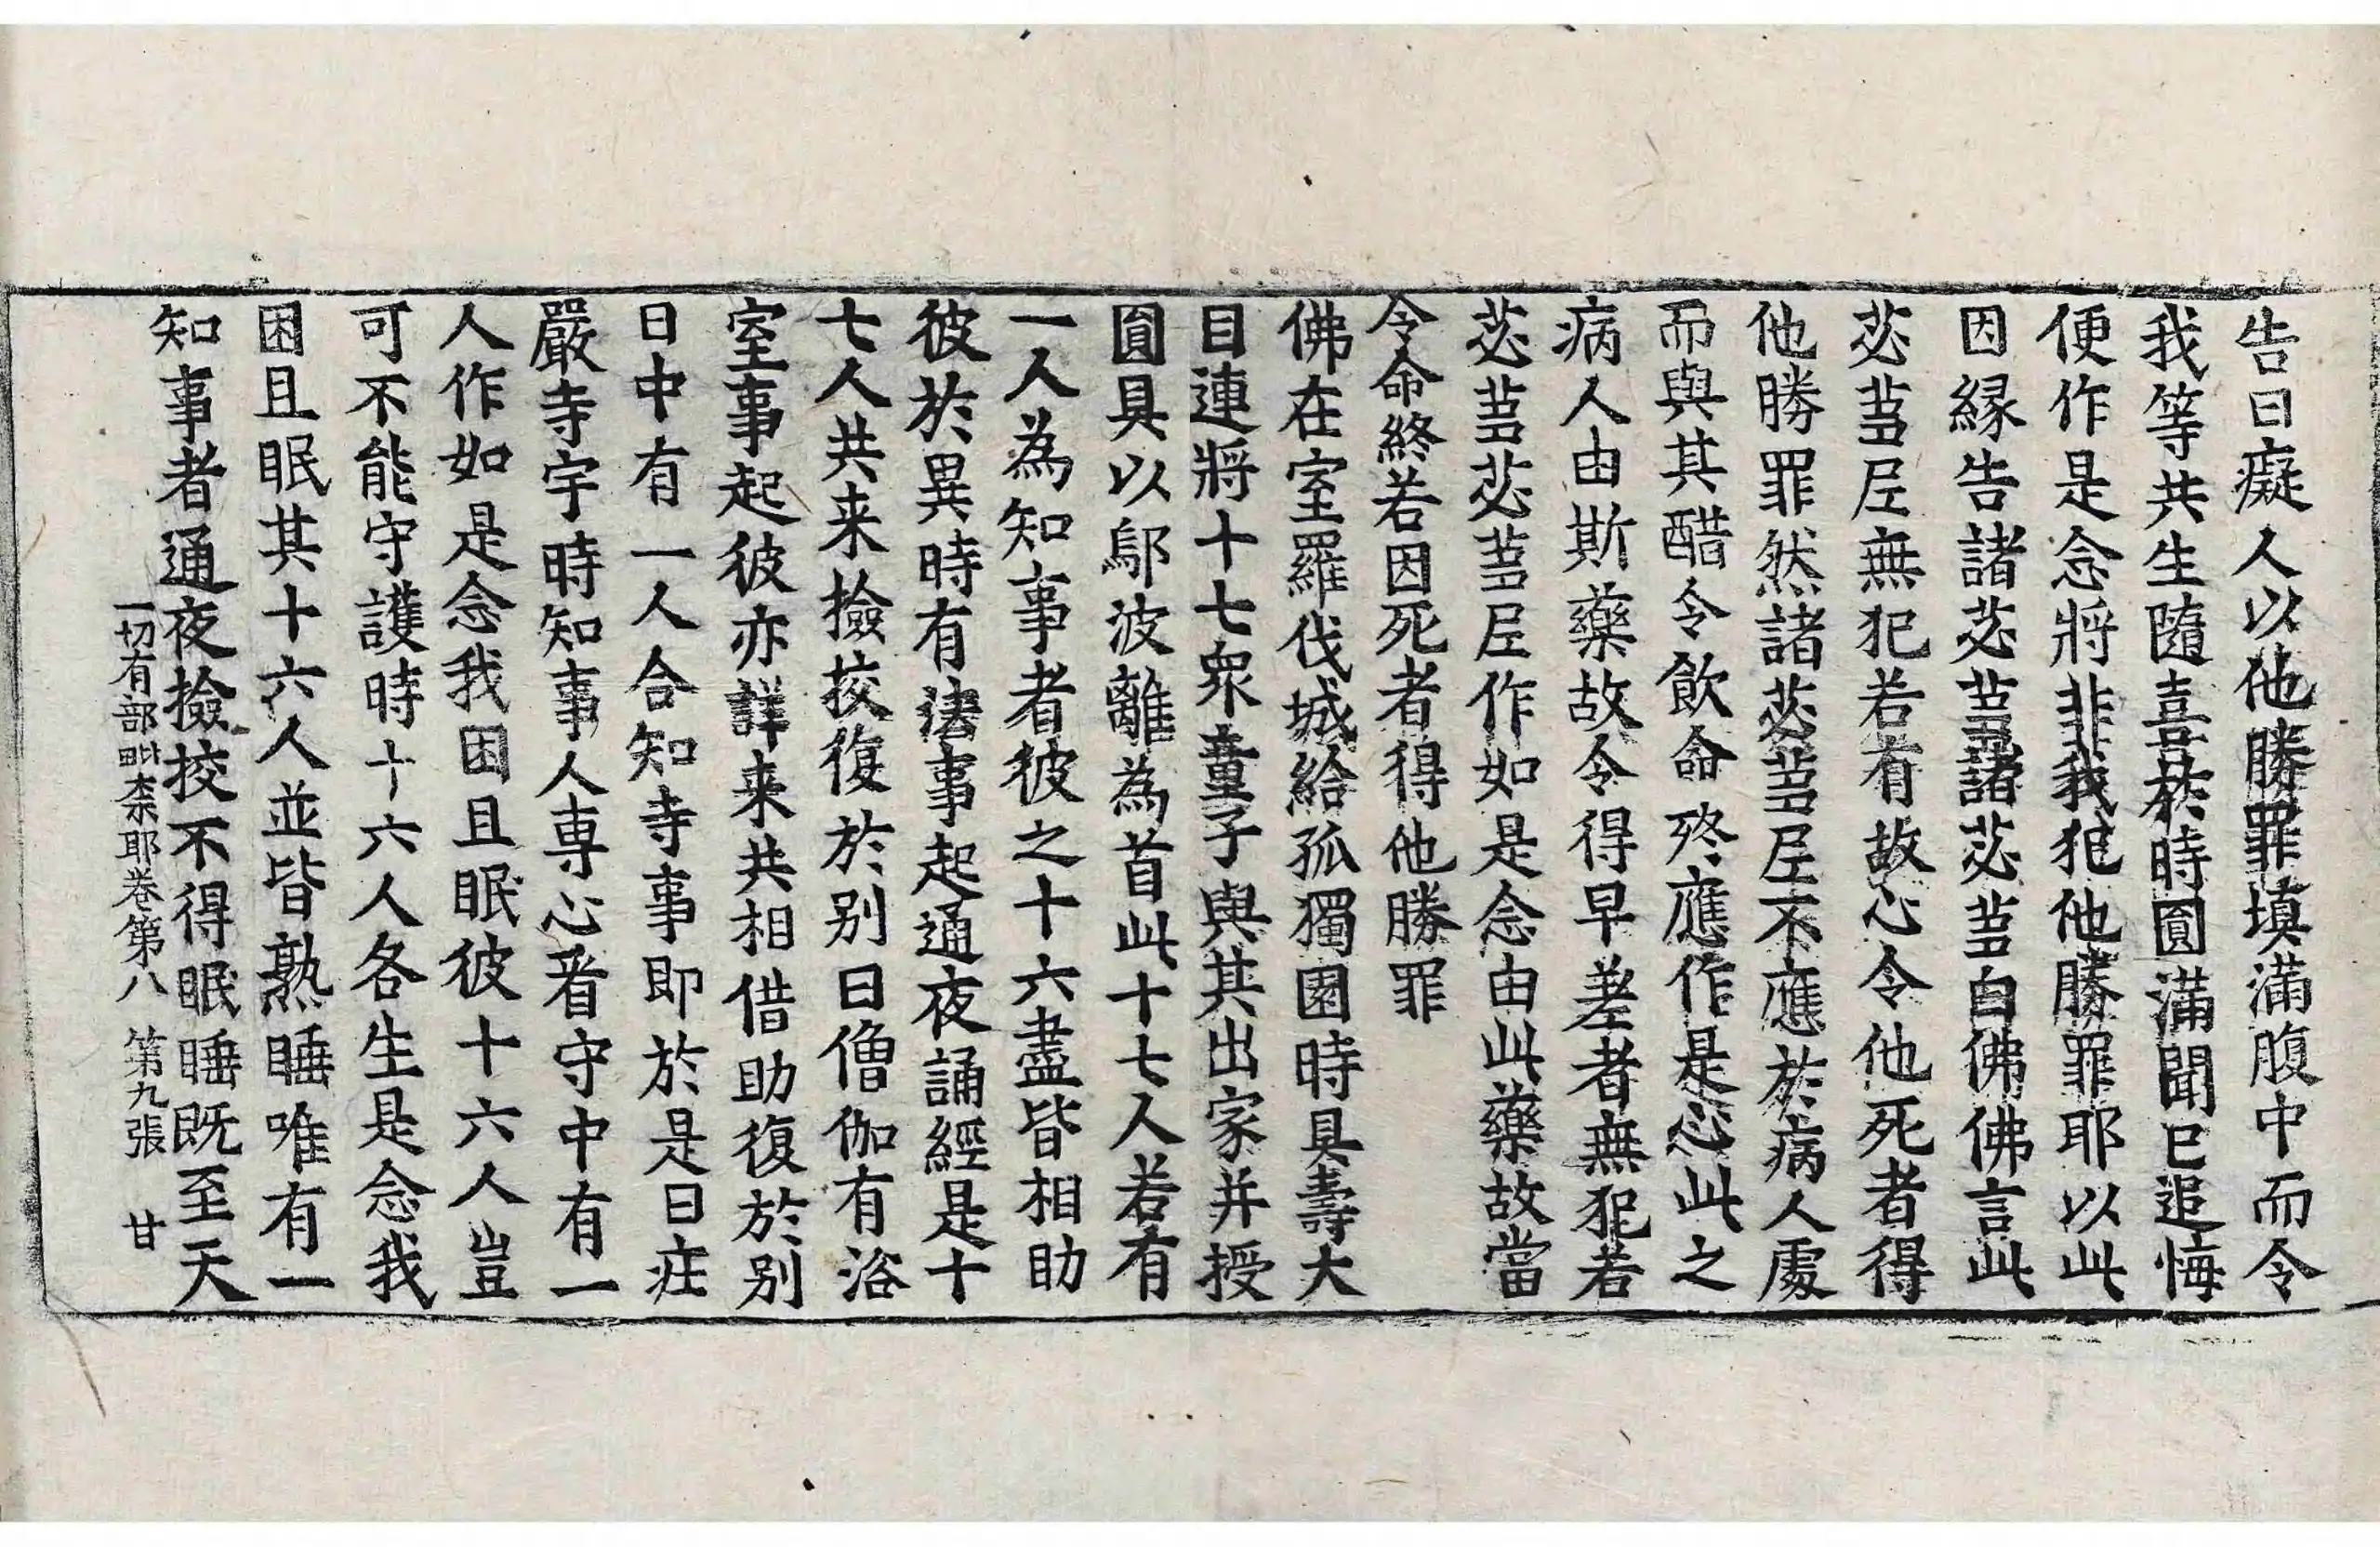 告曰癡人以他勝罪填滿腹中而令
我等共生隨喜於時圓滿聞已追悔
便作是念將非我犯他勝罪耶以此
因緣告諸苾芻諸苾芻白佛佛言此
苾芻尼無犯若有故心令他死者得
他勝罪然諸苾芻尼不應於病人處
而與其醋令飲命終應作是心此之
病人由斯藥故令得早差者無犯若
苾芻苾芻尼作如是念由此藥故當
令命終若因死者得他勝罪
佛在室羅伐城給孤獨園時具壽大
目連將十七眾童子與其出家并授
圓具以鄔波離為首此十七人若有
一人為知事者彼之十六盡皆相助
彼於異時有法事起通夜誦經是十
七人共来撿挍復於別日僧伽有浴
室事起彼亦詳来共相借助復於別
日中有一人合知寺事即於是日莊
嚴寺宇時知事人專心看守中有一
人作如是念我困且眠彼十六人豈
可不能守護時十六人各生是念我
困且眠其十六人並皆熟睡唯有一
知事者通夜撿挍不得眠睡既至天
一切有部毗柰耶卷第八　第九張　甘